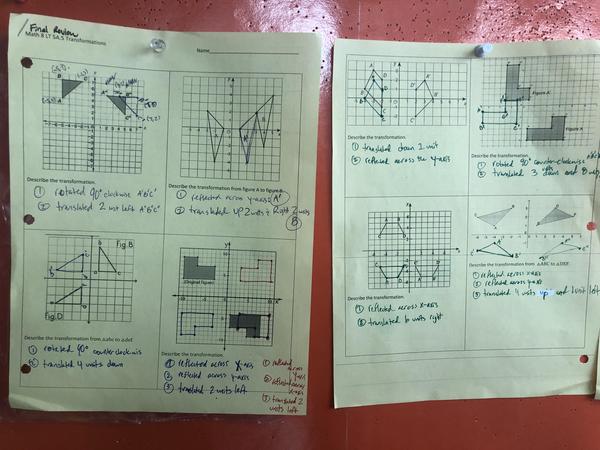 Final Review
Math 8 LT 5A.5 Transformations
Name
Describe the transformation.
① rotated 90° clockwise A'B'C'
② translated 2 unit left A"B"C"
Describe the transformation from figure A to figure B.
① reflected across y-axis A'
② translated up 2 units & Right 2 units
B
Fig.B
Fig.D
Describe the transformation from △abc to △def
① rotated 90° counterclockwis
② translated 4 units down
(Original figure)
Describe the transformation.
① reflected across x-axis
② reflected across y-axis
③ translated 2 units left
① reflected across y-axis
② reflected across x-axis
③ translated 2 units left
Describe the transformation.
① translated down 1 unit
② reflected across the y-axis
Figure A'
Figure A
Describe the transformation.
① rotated 90° counter-clockwise
② translated 3 units down and 8
Describe the transformation.
① reflected across x-axis
② translated 6 units right
Describe the transformation from △ABC to △DEF.
① reflected across x-axis
② reflected across y-axis
③ translated 4 units up and 1 unit left